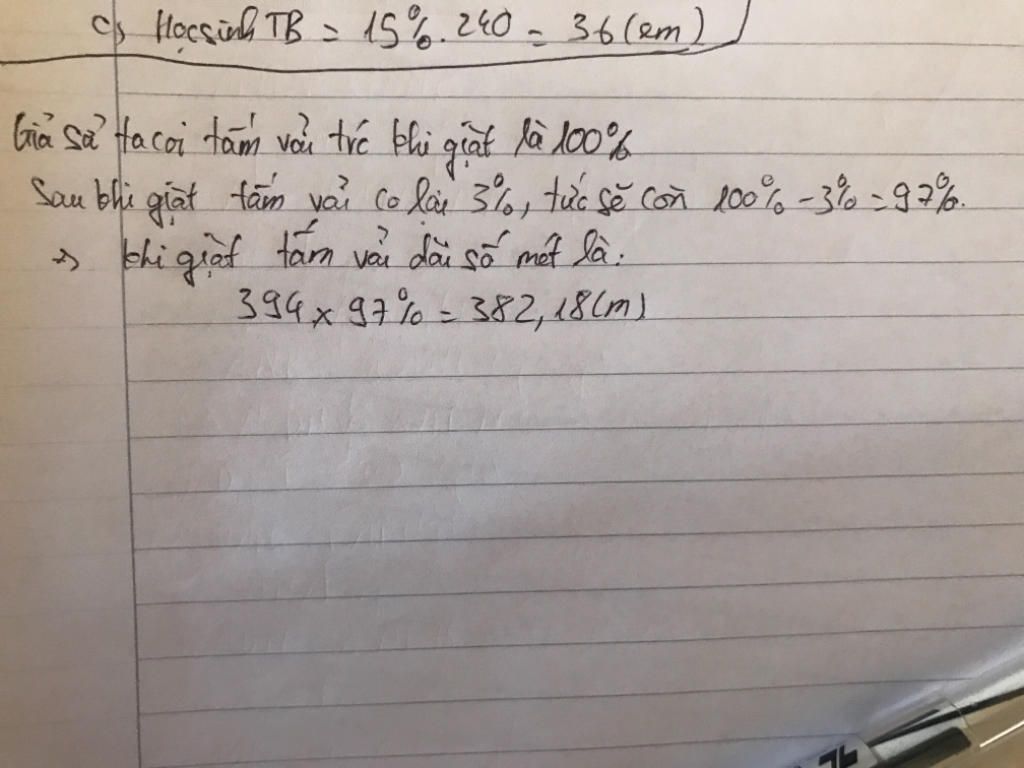 c) Học sinh TB = 15%.240 = 36 (em)
Giả sử ta coi tấm vải trc khi giặt là 100%
Sau khi giặt tấm vải co lại 3%, tức sẽ còn 100% - 3% = 97%.
=> khi giặt tấm vải dài số mét là:
394 x 97% = 382,18(m)